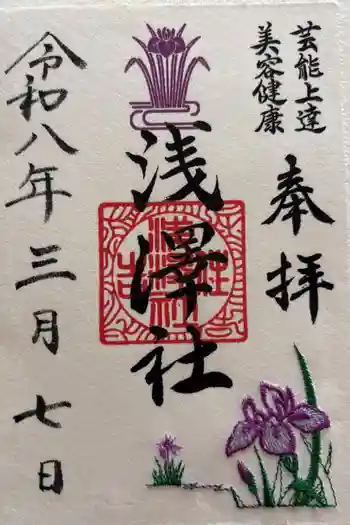 芸能上達
美容健康
奉拝
浅澤社
令和八年三月七日